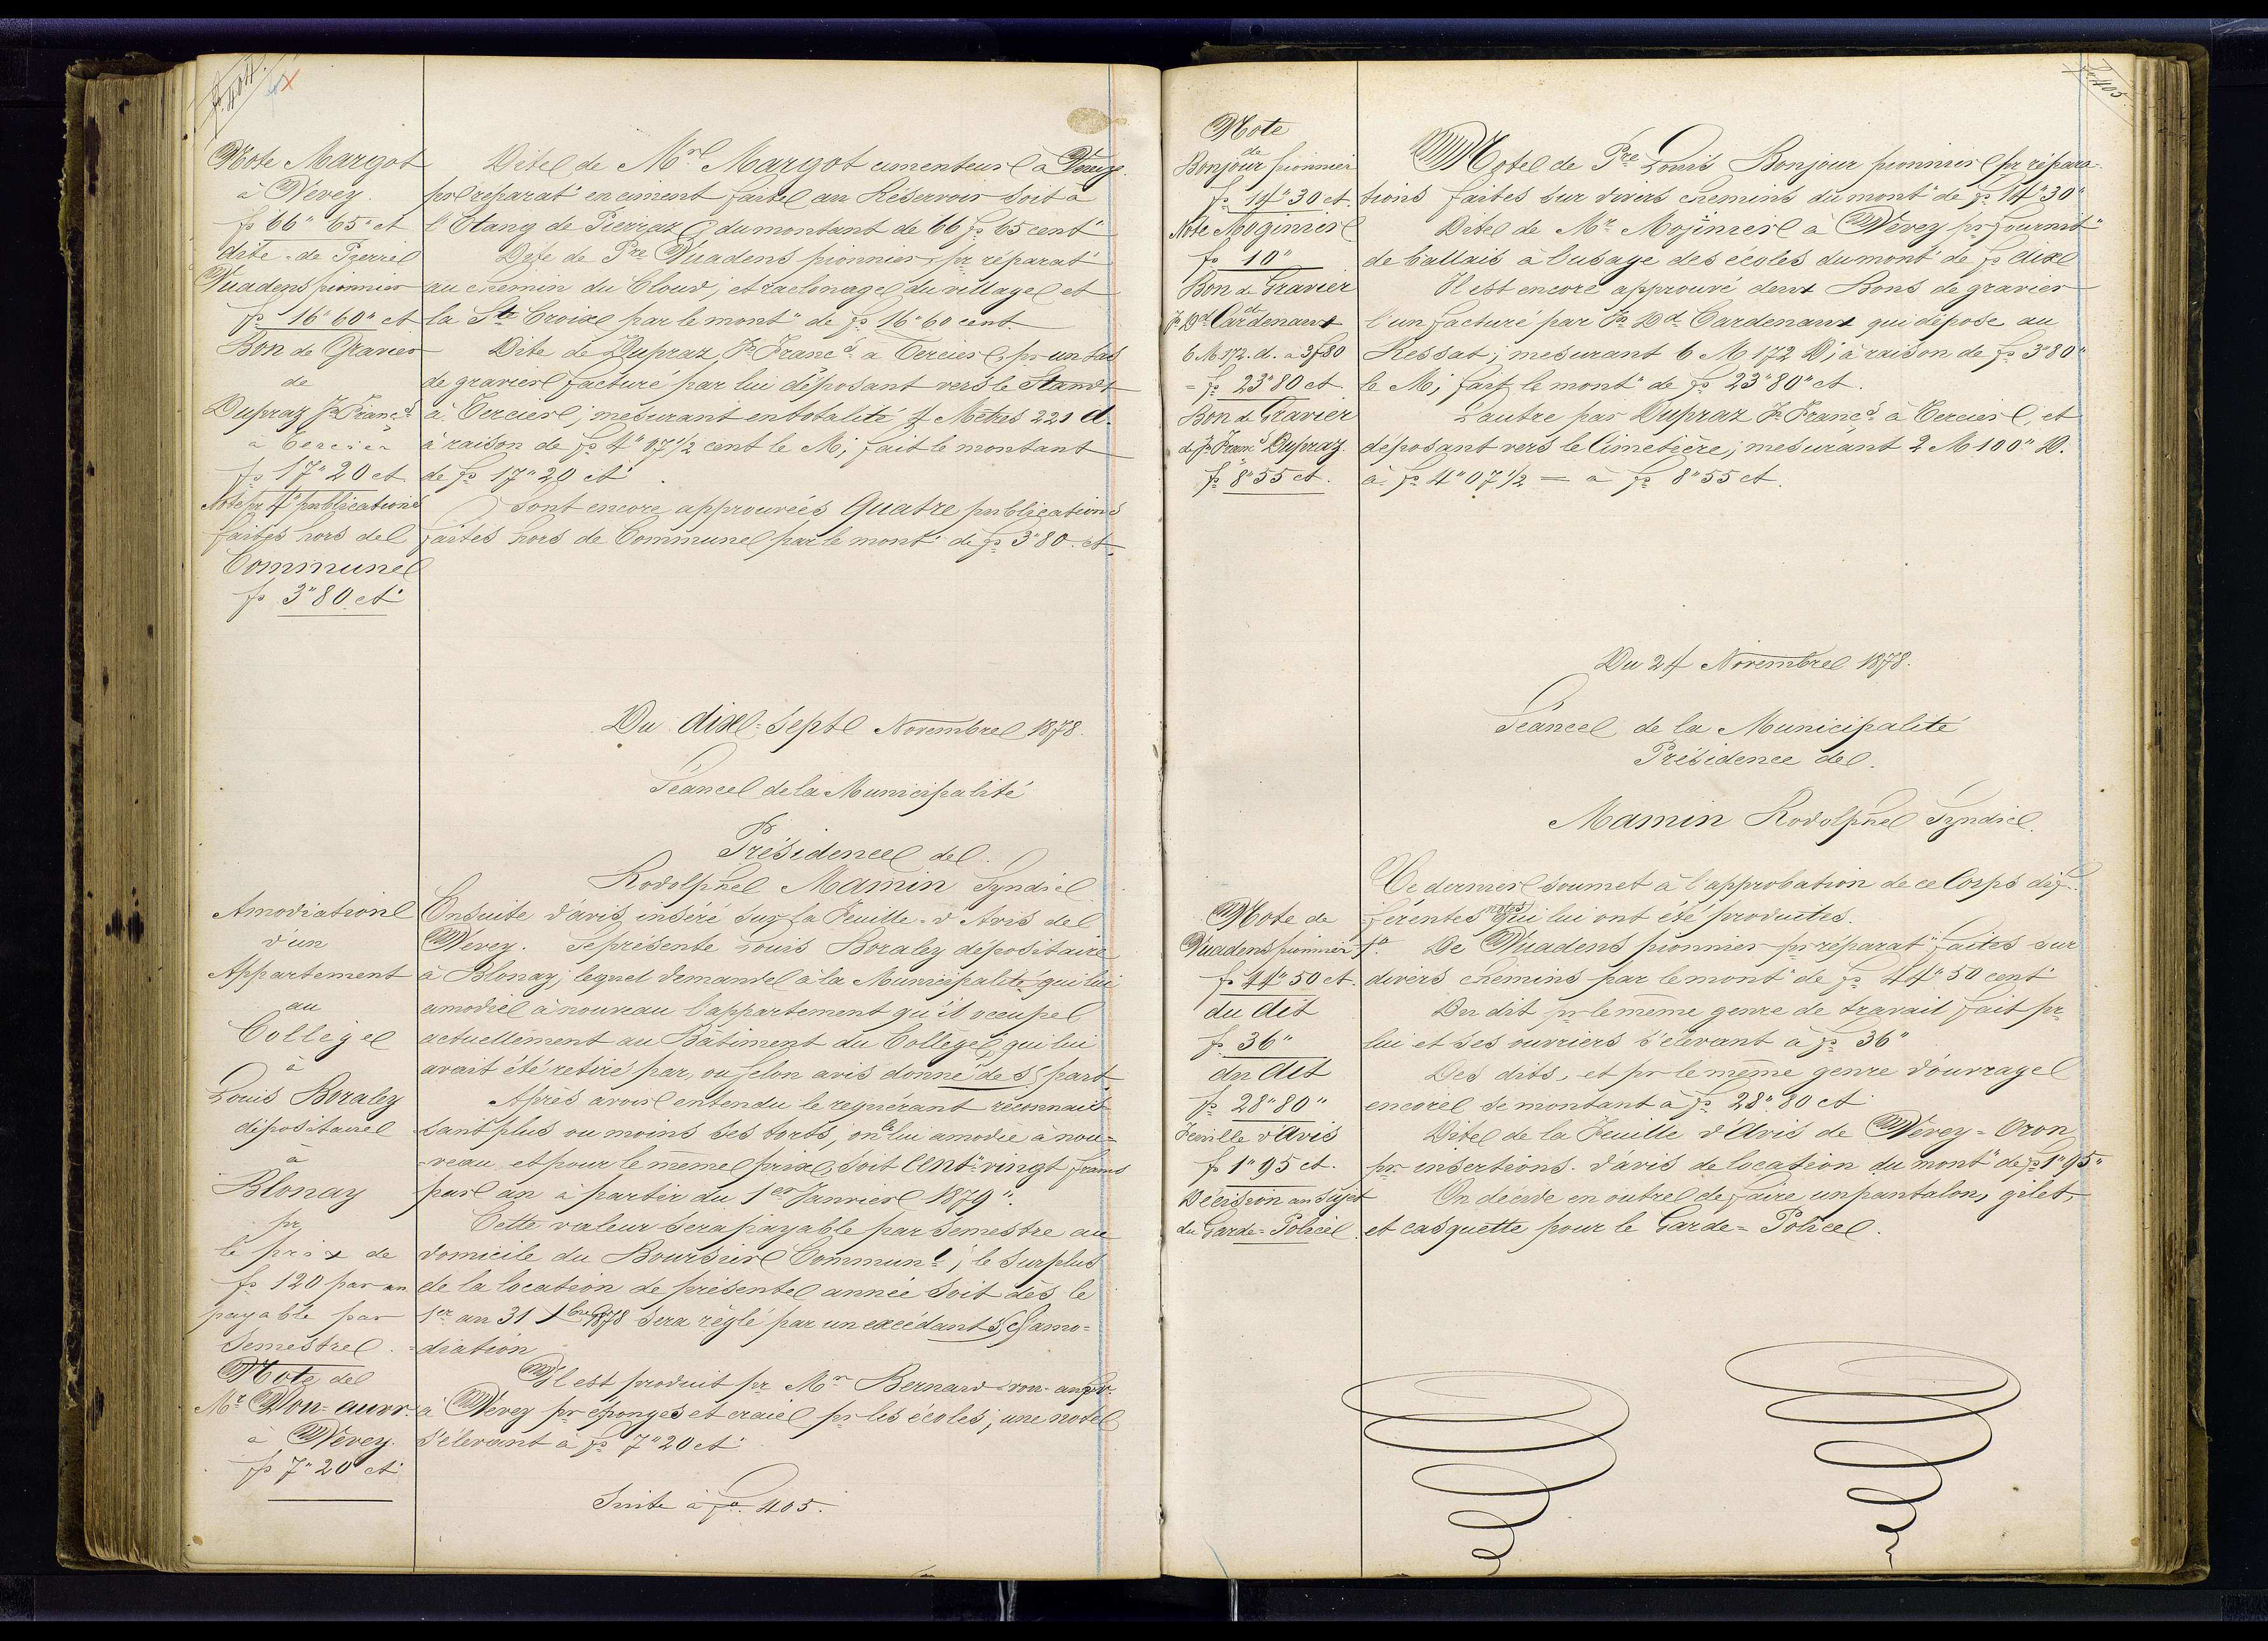 fo. 404.
Note Margot
à Vevey.
fs 66" 65" ct
dite = de Pierre
Vuadens pionnier
fs 16" 60" ct
Bon de Gravier
de
Dupraz Jn Francs
à Tercier
fs 17" 20 ct
Note pr 4" publications
faites hors de
Commune
fs 3" 80 ct
Dite de Mr Margot cimenteur à Vevey.
pr réparatn en ciment faite au Réservoir soit à
l'Etang de Pierraz du montant de 66 fs 65 cent"
Dite de Pre Vuadens pionnier, pr réparatn
au chemin du Cloud, et raclonage du village et
la Ste Croix par le mont" de fs 16" 60 cent.
Dite de Dupraz Jn Francs à Tercier, pr un tas
de gravier facturé par lui déposant vers le Standt
à Tercier; mesurant en totalité 4 Mètres 221 d.
à raison de fs 4" 07 1/2 cent le M; fait le montant
de fs 17" 20 ct
Sont encore approuvées Quatre publications
faites hors de Commune par le mont" de fs 3" 80. ct
Du dix=sept Novembre 1878.
Séance de la Municipalité
Présidence de
Rodolphe Mamin Syndic
Amodiation
d'un
Appartement
au
Collège
à
Louis Boraley
dépositaire
à
Blonay
pr
le prix de
fs 120 par an
payable par
Semestre.
Note de
Mr Von=auw.
à Vevey.
fs 7" 20 ct
Ensuite d'avis inséré sur la Feuille=d'Avis de
Vevey. Se présente Louis Boraley dépositaire
à Blonay; lequel demande à la Municipalité qui lui
amodie à nouveau l'appartement qu'il occupe
actuellement au Bâtiment du Collège, qui lui
avait été retiré par, ou selon avis donné de sa part.
Après avoir entendu le requérant reconnais=
sant plus ou moins ses torts, on le lui amodie à nou=
=veau et pour le même prix, soit cent"vingt francs
par an à partir du 1er Janvier 1879".
Cette valeur sera payable par semestre au
domicile du Boursier Communl; le surplus
de la location de présente année soit dès le
1er au 31 Xbre 1878 sera réglé par un excédant s/ amo=
=diation
Il est produit pr Mr Bernard von=auw
à Vevey pr éponges et craie pr les écoles; une note
s'élevant à fs 7" 20 ct
Suite à fo. 405.
fo. 405.
Note
de
Bonjour pionnier
fs 14" 30 ct.
Note Moginier
fs 10"
Bon de Gravier
de
Jn Dd Cardenaux
6 M 172. d. à 3f80
= fs 23" 80 ct.
Bon de Gravier
de Jn Francs Dupraz.
fs 8" 55 ct.
Note de Pre Louis Bonjour pionnier pr répara=
tions faites sur divers chemins du mont" de fs 14" 30"
Dite de Mr Moginier à Vevey pr fournit"
de ballais à l'usage des écoles du mont" de fs dix
Il est encore approuvé deux Bons de gravier
l'un facturé par Jn Dd Cardenaux qui dépose au
Ressat; mesurant 6 M 172 D; à raison de fs 3" 80"
le M; fait le mont" de fs 23" 80" ct.
L'autre par Dupraz Jn Francs à Tercier, et
déposant vers le Cimetière; mesurant 2 M 100" D.
à fs 4" 07 1/2 = à fs 8" 55 ct.
Du 24 Novembre 1878.
Séance de la Municipalité
Présidence de
Mamin Rodolphe Syndic.
Note de
Vuadens pionnier
fs 44" 50 ct.
du dit
fs 36"
du dit
fs 28" 80"
Feuille d'avis
fs 1" 95 ct.
Décision au sujet
du Garde=Police.
Ce dernier soumet à l'approbation de ce Corps dif=
férentes notes qui lui ont été produites.
1o. De Vuadens pionnier pr réparatn faites sur
divers chemins par le mont" de fs 44" 50 cent
Du dit pr le même genre de travail fait pr
lui et ses ouvriers s'élevant à fs 36"
Des dits, et pr le même genre d'ouvrage
encore se montant à fs 28" 80 ct
Dite de la Feuille d'Avis de Vevey=Oron
pr insertions d'avis de location du mont" de fs 1" 95"
On décide en outre de faire un pantalon, gilet,
et casquette pour le Garde=Police.